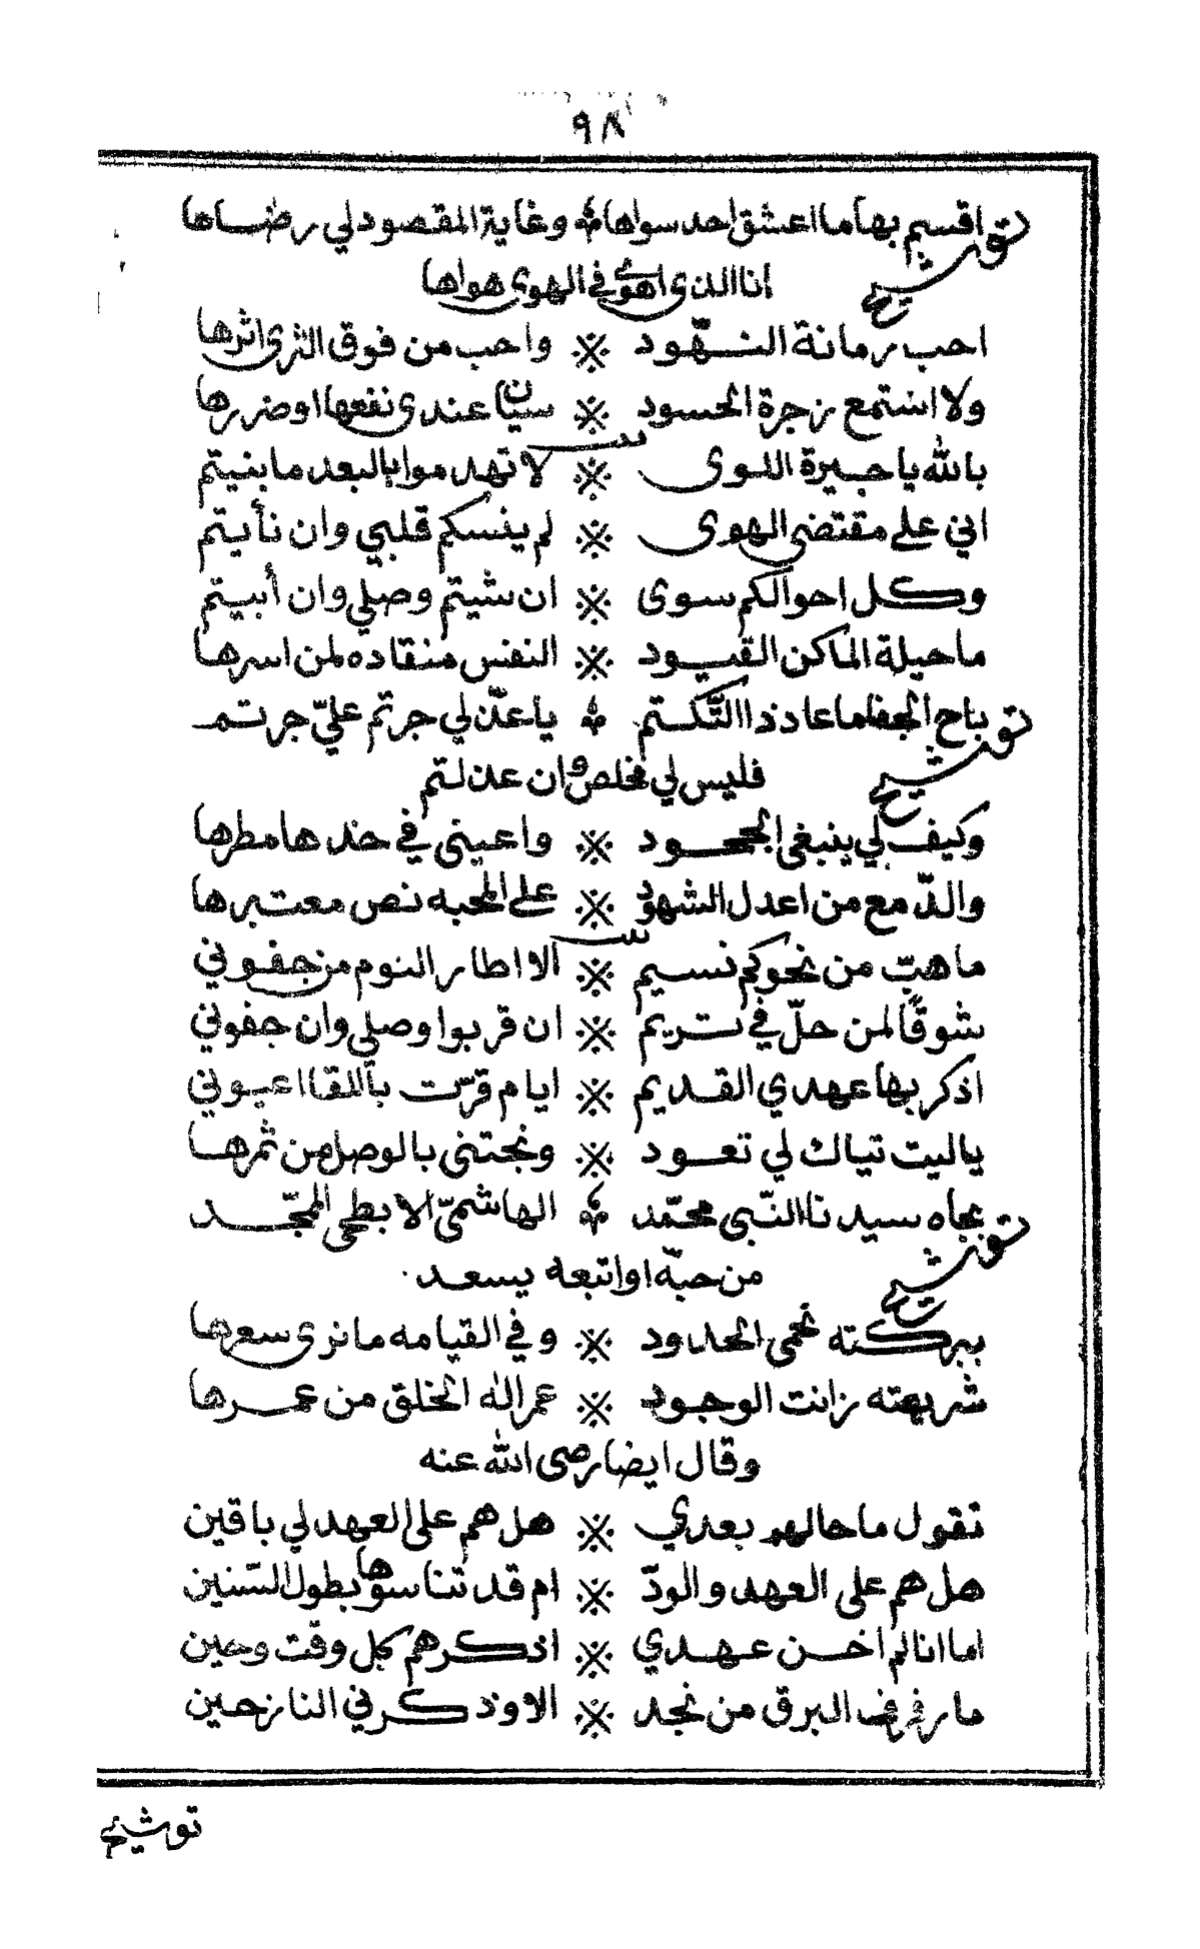 ٩٨
توشيح اقسم بها ما اعشق احد سواها ☙ وغاية المقصود لي رضاها
انا الذي اهوى في الهوى هواها
احب رمانة النهّود ※ واحب من فوق الثرى اثرها
ولا استمع زجرة الحسود ※ سيّان عندي نفعها اوضررها
بيت
بالله يا جيرة اللوى ※ لا تهدموا بالبعد ما بنيتم
اني على مقتضى الهوى ※ لم ينسكم قلبي وان نأيتم
وكل احوالكم سوى ※ ان شيتم وصلي وان أبيتم
ما حيلة الماكن القيود ※ النفس منقاده لمن اسرها
توشيح باح الجفا ما عاد ذا التّكتم ☙ يا عذّلي جرتم عليّ جرتم
فليس لي مخلص وان عذلتم
وكيف لي ينبغي الجحود ※ واعيني في خدها مطرها
والدّمع من اعدل الشهود ※ على المحبه نص معتبرها
بيت
ما هبّ من نحوكم نسيم ※ الا اطار النوم من جفوني
شوقًا لمن حلّ في تريم ※ ان قربوا وصلي وان جفوني
اذكر بها عهدي القديم ※ ايام قرّت باللقا اعيوني
ياليت تياك لي تعود ※ ونجتني بالوصل من ثمرها
توشيح بجاه سيدنا النّبي محمّد ☙ الهاشميّ الابطحي الممجّد
من حبّه اواتبعه يسعد
ببركته نحمى الحدود ※ وفي القيامه ما نرى سعرها
شريعته زانت الوجود ※ عمر اله الخلق من عمرها
وقال ايضا رضى الله عنه
تقول ما حالهم بعدي ※ هل هم على العهد لي باقين
هل هم على العهد والودّ ※ ام قد تناسوها بطول السّنين
اما انا لم اخن عهدي ※ اذكرهم كل وقت وحين
ما رفرف البرق من نجد ※ الا وذكرني النازحين
توشيح